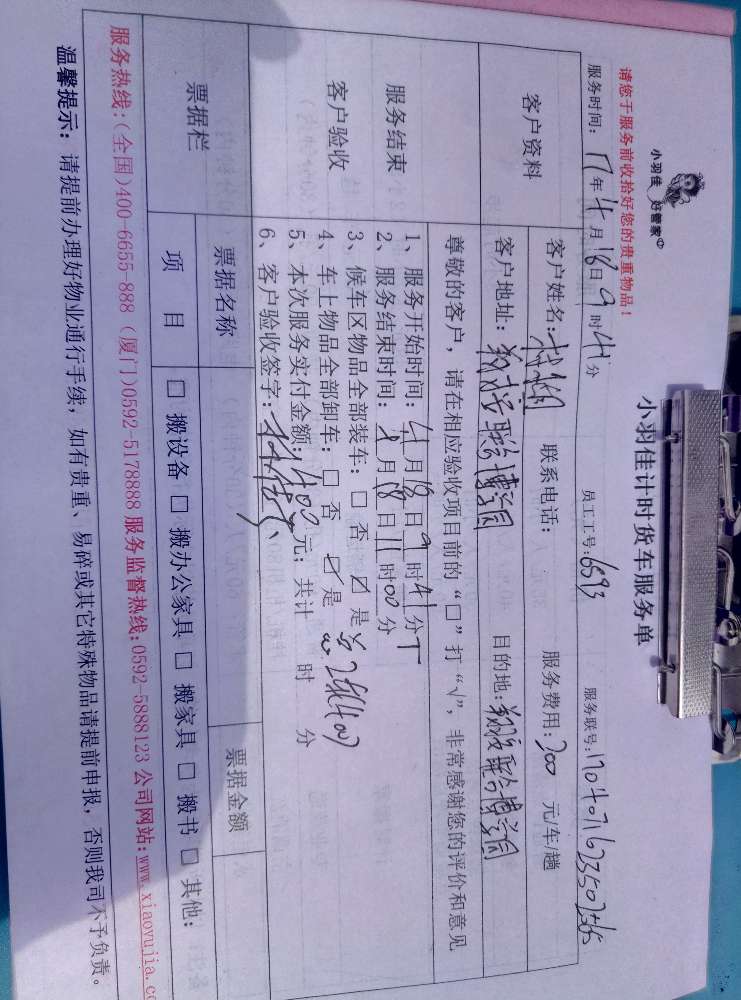 小羽佳 好管家
小羽佳计时货车服务单
请您于服务前收拾好您的贵重物品！
服务时间：17年4月18日9时41分 员工工号：6593 服务联号：170407162350256
客户资料
客户姓名： 联系电话： 服务费用：200 元/车/趟
客户地址：翔安 联 博学园 目的地：翔安 联 博学园
尊敬的客户，请在相应验收项目前的“□”打“√”，非常感谢您的评价和意见
服务结束
客户验收
1、服务开始时间：4月18日9时41分
2、服务结束时间：4月18日11时00分
3、候车区物品全部装车：□ 否 ☑ 是
4、车上物品全部卸车：□ 否 ☑ 是 2 400
5、本次服务实付金额：400元；共计 时 分
6、客户验收签字：
票据栏
票据名称 票据金额
项 目 □ 搬设备 □ 搬办公家具 □ 搬家具 □ 搬书 □ 其他：
服务热线：(全国)400-6655-888 (厦门)0592-5178888 服务监督热线:0592-5888123 公司网站:www.xiaoyujia.c
温馨提示：请提前办理好物业通行手续，如有贵重、易碎或其它特殊物品请提前申报，否则我司不予负责。